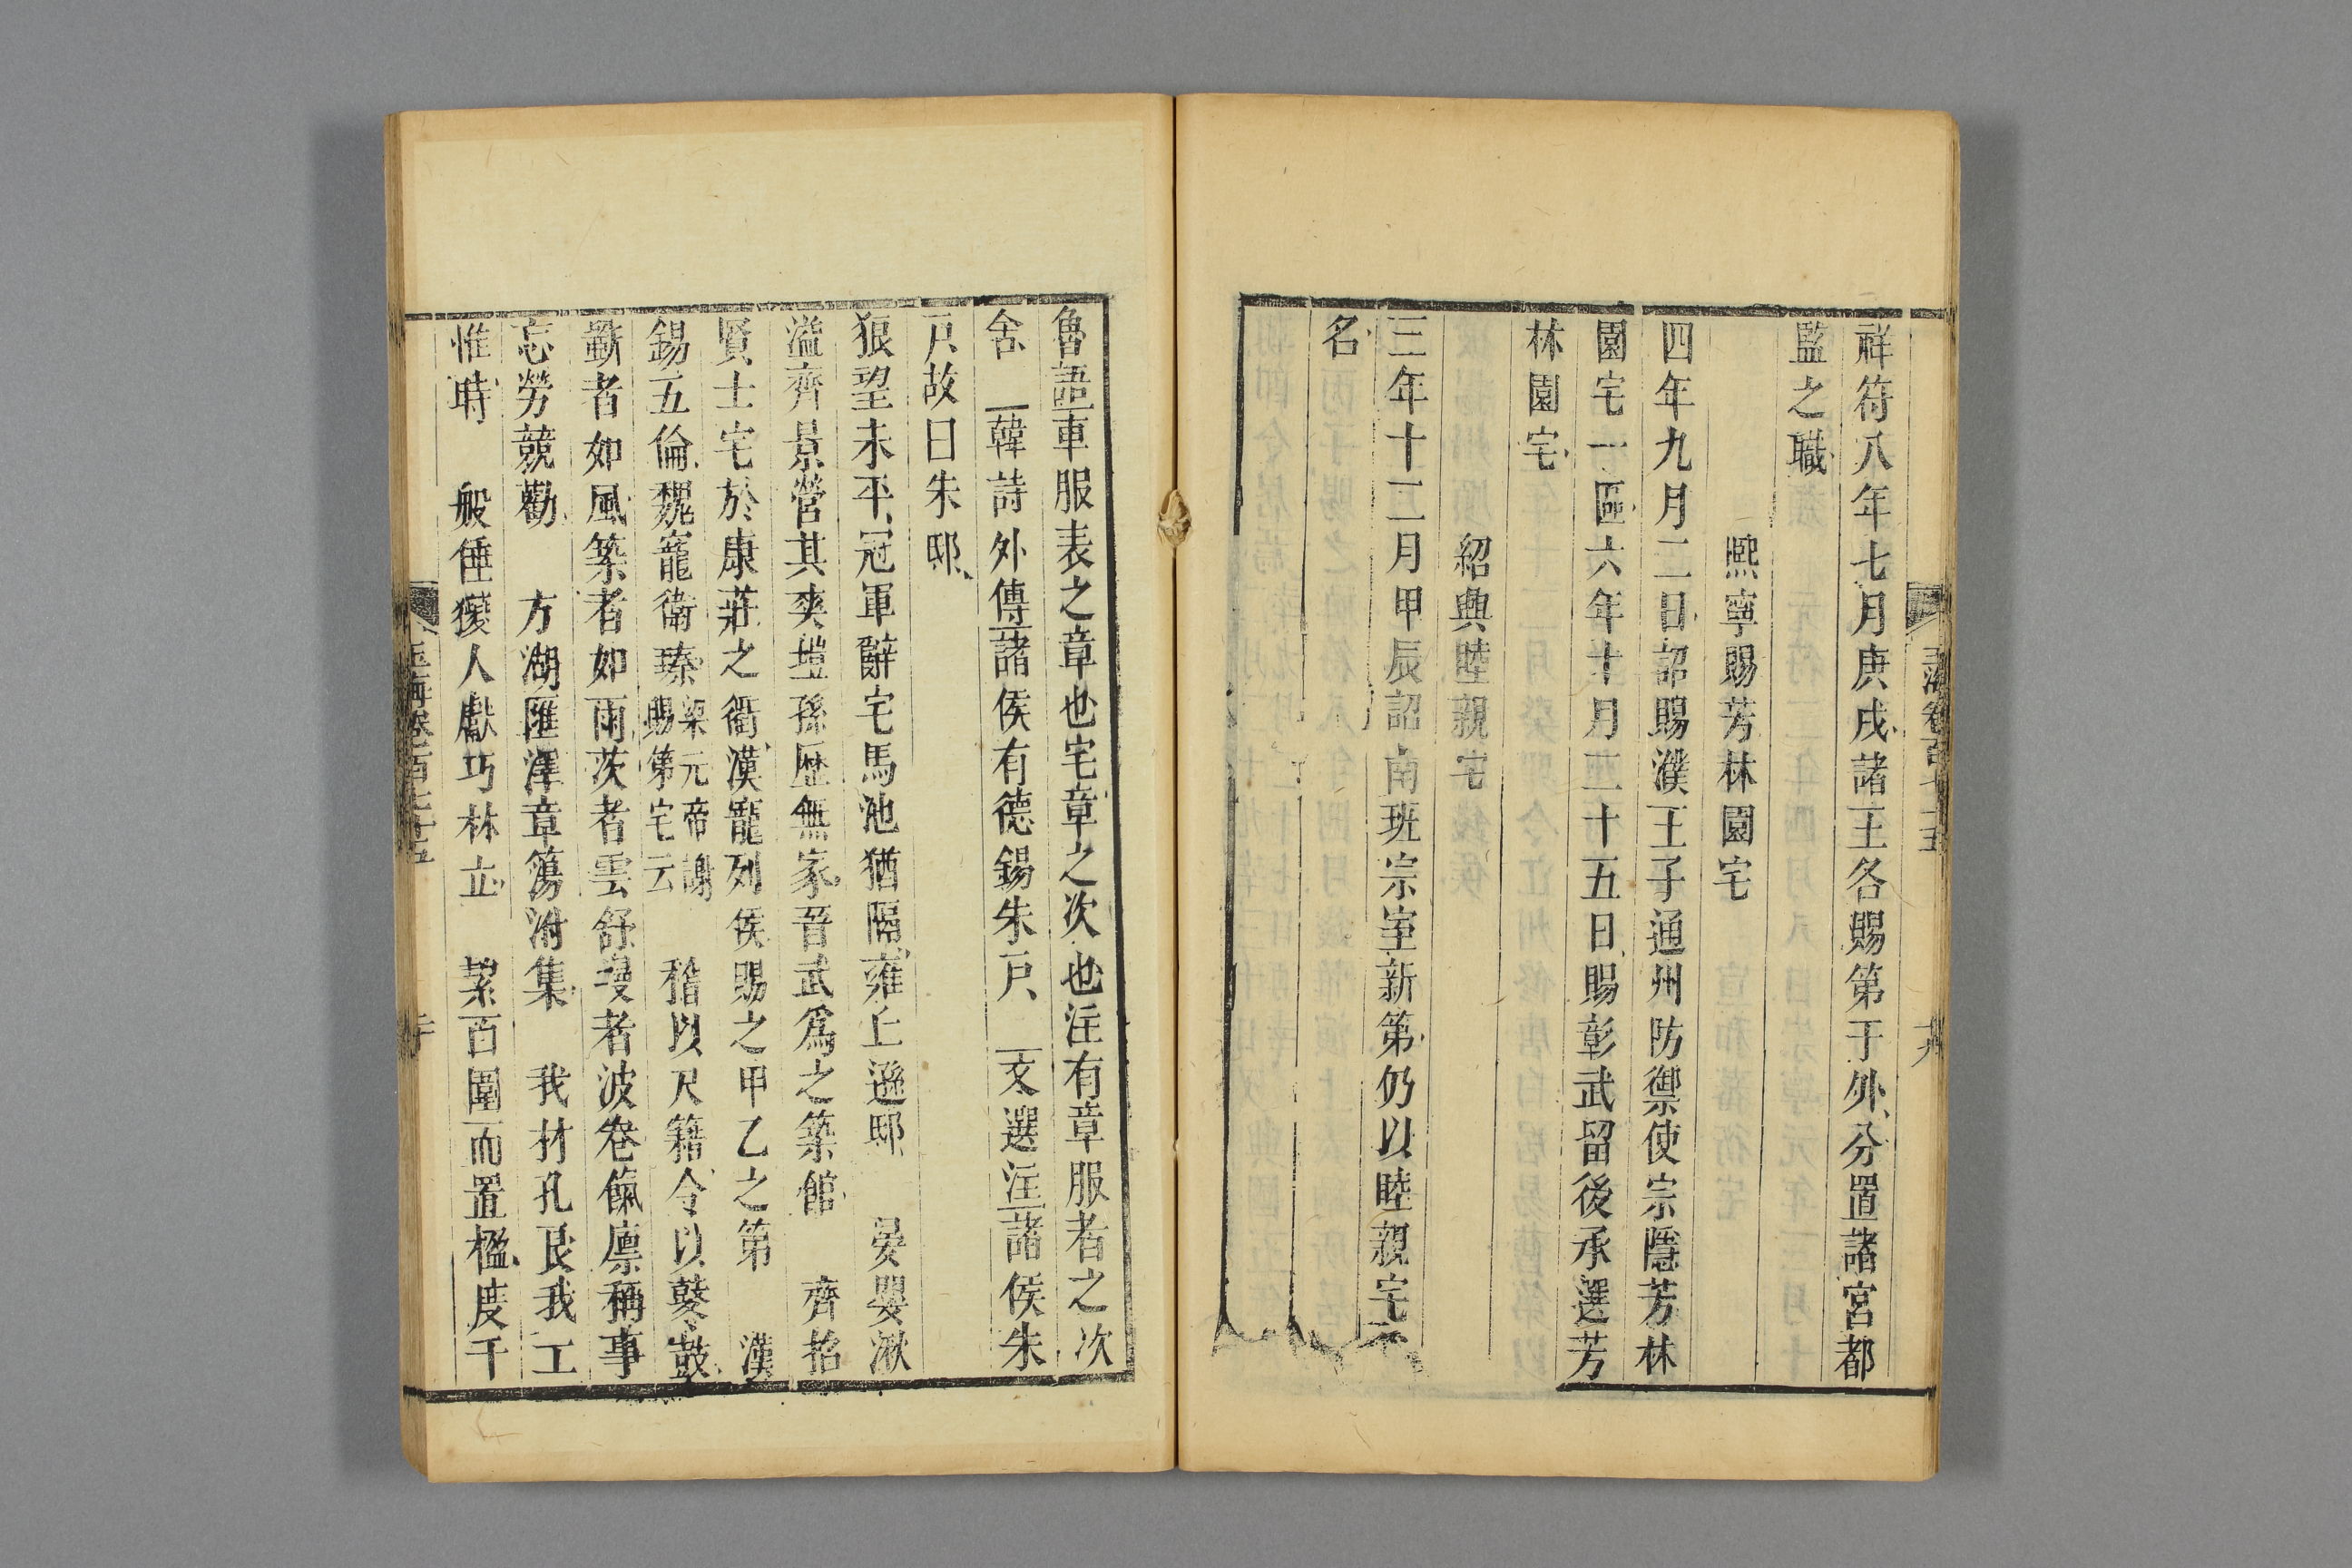 祥符八年七月庚戌諸王各賜第于外分置諸宮都
監之職
熈寧賜芳林園宅
四年九月二日詔賜濮王子通州防禦使宗隱芳林
園宅一區六年十月二十五日賜彰武留後承選芳
林園宅
紹興睦親宅
三年十二月甲辰詔南班宗室新第仍以睦親宅
名
魯語車服表之章也宅章之次也注有章服者之次
舍 韓詩外傳諸侯有德錫朱戸 文選注諸侯朱
戸故曰朱邸
狼望未平冠軍辭宅馬池猶隔雍丘遜邸 晏嬰湫
溢齊景營其爽塏孫歷無家晉武爲之築館 齊招
賢士宅於康莊之衢漢寵列侯賜之甲乙之第 漢
錫五倫魏寵衛臻梁元帝謝賜第宅云 稽以尺籍令以鼛鼓
斸者如風築者如雨茨者雲舒墁者波卷餼廪稱事
忘勞競勸 方湖匯澤章籓洲集 我材孔良我工
惟時 般倕獿人獻巧林立 絜百圍而置楹度千
玉海卷一百七十五